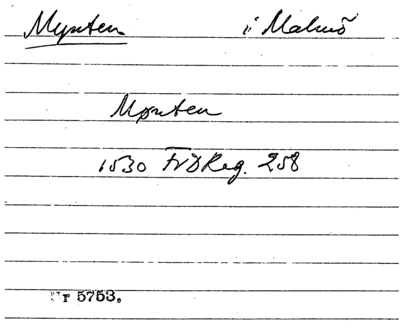 Mynten i Malmö
Mønten
1530 FrDReg. 258
Nr 5753.